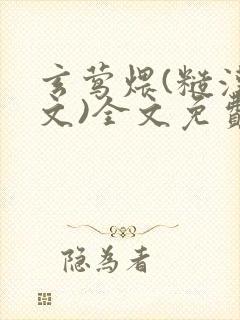 玄莺煨(糙汉
文)全文免费
隐为者